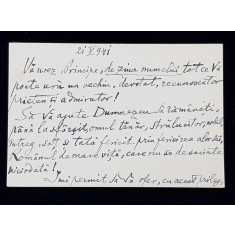 21 X 941
Vă urez Principe, de ziua numelui tot ce Vă
poate ura un vechiu, devotat, recunoscător
prieten și admirator!
Să Vă ajute Dumnezeu să rămâneți,
până la sfârșit, omul tânăr, strălucitor, nobil,
întreg, soț și tată fericit prin fericirea alor săi,
Românul de mare viță, care nu se desminte
niciodată!
Îmi permit să Vă ofer, cu acest prilej,